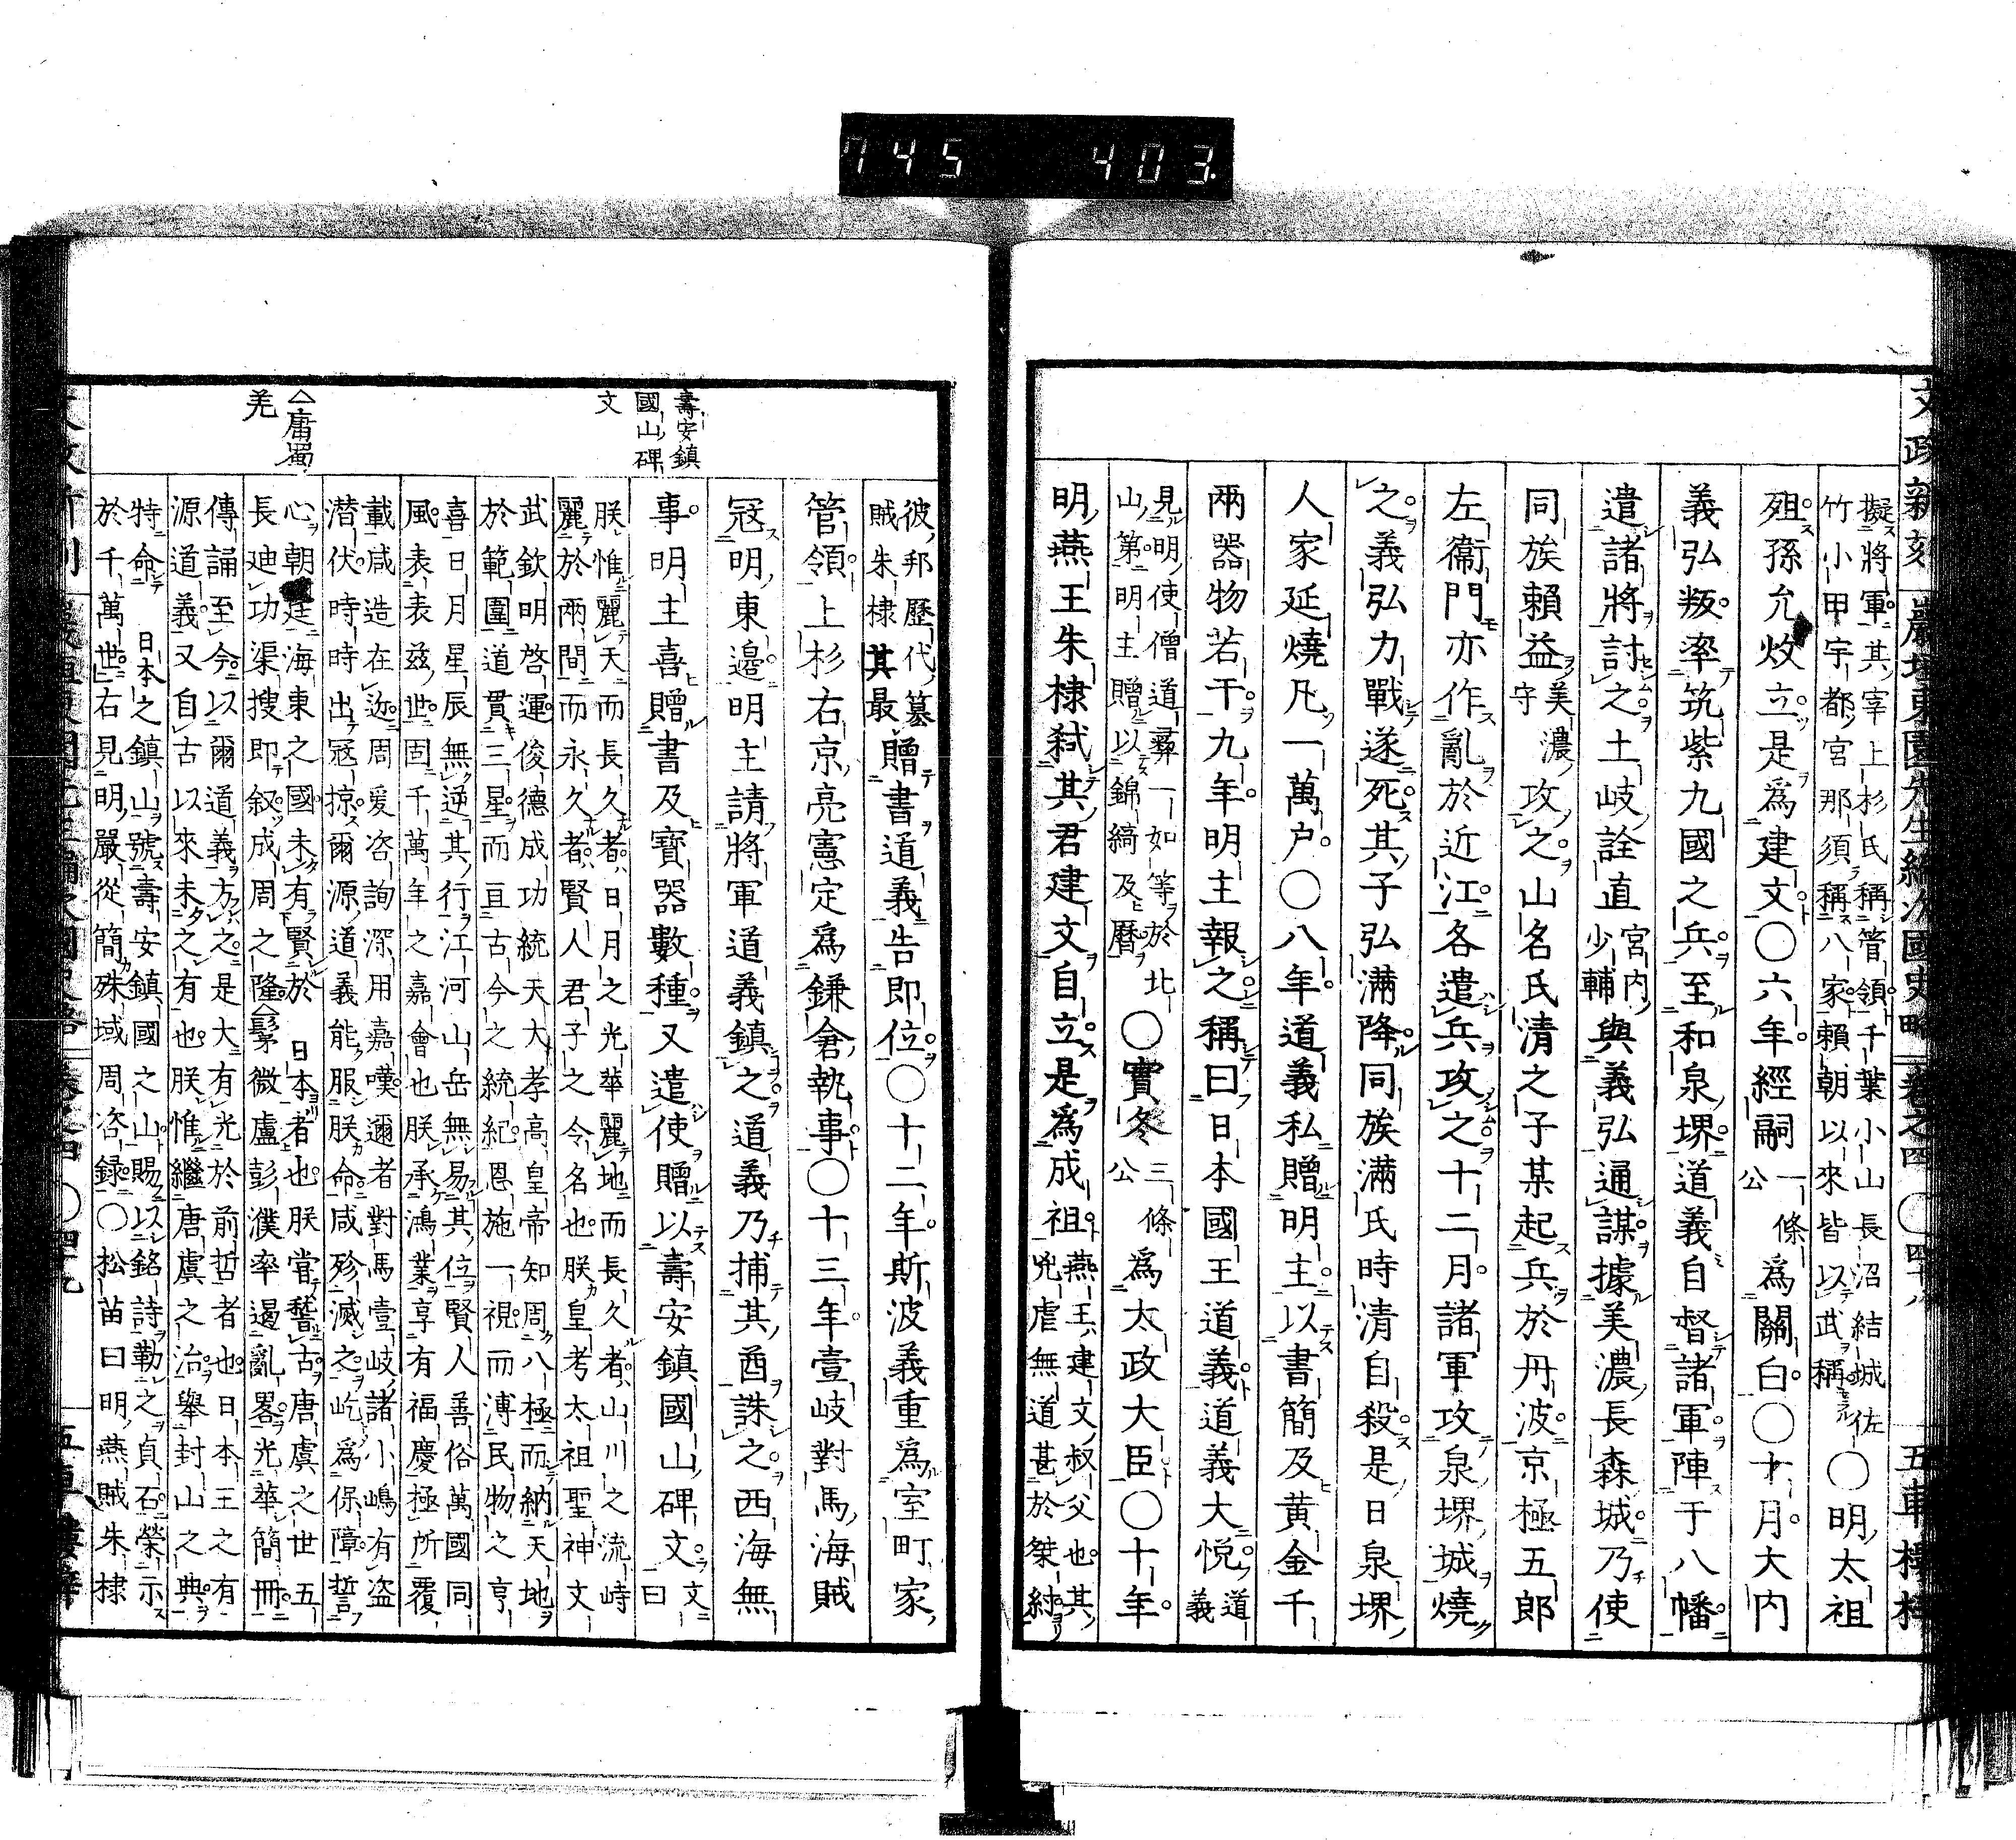 745 403
文政新刻 巖垣東園先生編次國史略 卷之四 〇四十八 五車樓梓
擬將軍其宰上杉氏稱管領千葉小山長沼結城佐
竹小甲宇都宮那須稱八家賴朝以來皆以武稱
〇明太祖
殂孫允炆立是爲建文〇六年經嗣一條公爲關白〇十月大内
義弘叛率筑紫九國之兵至和泉堺道義自督諸軍陣于八幡
遣諸將討之土岐詮直宮内少輔與義弘通謀據美濃長森城乃使
同族賴益美濃守攻之山名氏清之子某起兵於丹波京極五郎
左衞門亦作亂於近江各遣兵攻之十二月諸軍攻泉堺城燒
之義弘力戰遂死其子弘滿降同族滿氏時清自殺是日泉堺
人家延燒凡一萬戸〇八年道義私贈明主以書簡及黄金千
兩器物若干九年明主報之稱曰日本國王道義道義大悅道義
見明使僧道彞一如等於北
山第明主贈以錦綺及曆
〇實冬三條公爲太政大臣〇十年
明燕王朱棣弑其君建文自立是爲成祖
燕王建文叔父也其
兇虐無道甚於桀紂
彼邦歷代簒
賊朱棣其最
贈書道義告即位〇十二年斯波義重爲室町家
管領上杉右京亮憲定爲鎌倉執事〇十三年壹岐對馬海賊
冦明東邊明主請將軍道義鎮之道義乃捕其酋誅之西海無
事明主喜贈書及寶器數種又遣使贈以壽安鎮國山碑文文曰
壽安鎮
國山碑
文
朕惟麗天而長久者日月之光華麗地而長久者山川之流峙
麗於兩間而永久者賢人君子之令名也朕皇考太祖聖神文
武欽明啓運俊德成功統天大孝高皇帝知周八極而納天地
於範圍道貫三星而亘古今之統紀恩施一視而溥民物之亨
喜日月星辰無逆其行江河山岳無易其位賢人善俗萬國同
風表表茲世固千萬年之嘉會也朕承鴻業享有福慶極所覆
載咸造在迩周爰咨詢深用嘉嘆邇者對馬壹岐諸小嶋有盗
潜伏時時出冦掠爾源道義能服朕命咸殄滅之屹爲保障誓
心朝廷海東之國未有賢於日本者也朕嘗稽古唐虞之世五
長廸功渠搜即叙成周之隆髳微盧彭濮率遏亂畧光華簡冊
〈庸蜀
羌
傳誦至今以爾道義方之是大有光於前哲者也日本王之有
源道義又自古以來未之有也朕惟繼唐虞之治舉封山之典
特命日本之鎮山號壽安鎮國之山賜以銘詩勒之貞石榮示
於千萬世右見明嚴從簡殊域周咨録〇松苗曰明燕賊朱棣